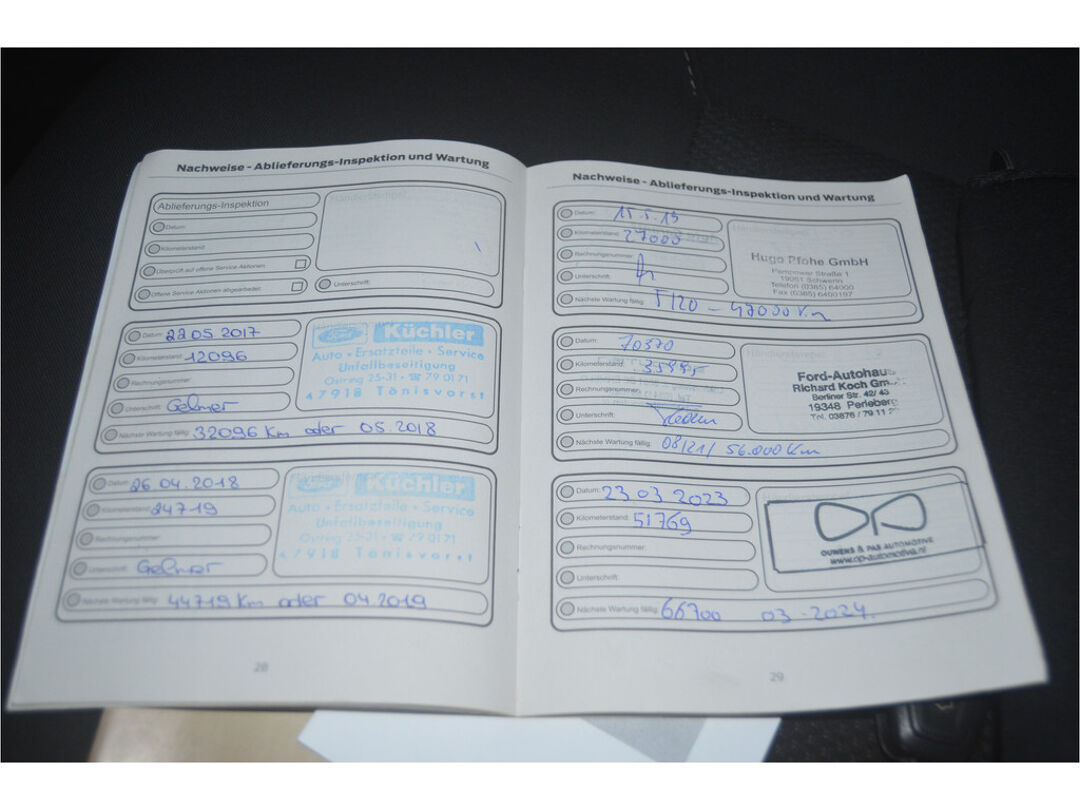 Nachweise - Ablieferungs-Inspektion und Wartung
Ablieferungs-Inspektion
Datum:
Kilometerstand:
Überprüft auf offene Service Aktionen:
Offene Service Aktionen abgearbeitet:
Händlerstempel:
Unterschrift:
Datum: 22 05 2017
Kilometerstand: 12096
Rechnungsnummer:
Unterschrift: Gelmer
Nächste Wartung fällig: 32096 Km oder 05.2018
Ford Küchler
Auto • Ersatzteile • Service
Unfallbeseitigung
Ostring 25-31 • ☎ 79 01 71
47918 Tönisvorst
Datum: 26 04.2018
Kilometerstand: 24719
Rechnungsnummer:
Unterschrift: Gelmer
Nächste Wartung fällig: 44719 Km oder 04.2019
Ford Küchler
Auto • Ersatzteile • Service
Unfallbeseitigung
Ostring 25-31 • ☎ 79 01 71
47918 Tönisvorst
28
Nachweise - Ablieferungs-Inspektion und Wartung
Datum: 15.5.19
Kilometerstand: 27000
Rechnungsnummer:
Unterschrift:
Nächste Wartung fällig: 5/20 - 47000 Km
Händlerstempel:
Hugo Pfohe GmbH
Pampower Straße 1
19061 Schwerin
Telefon (0385) 64000
Fax (0385) 6400197
Datum:
Kilometerstand:
Rechnungsnummer:
Unterschrift:
Nächste Wartung fällig: 08/21/ 56.000 Km
Händlerstempel:
Ford-Autohau
Richard Koch Gm
Berliner Str. 42/ 43
19348 Perleberg
Tel. 03876 / 79 11
Datum: 23 03 2023
Kilometerstand: 51769
Rechnungsnummer:
Unterschrift:
Nächste Wartung fällig: 66700 03-2024.
OUWENS & PAS AUTOMOTIVE
www.op-automotive.nl
29